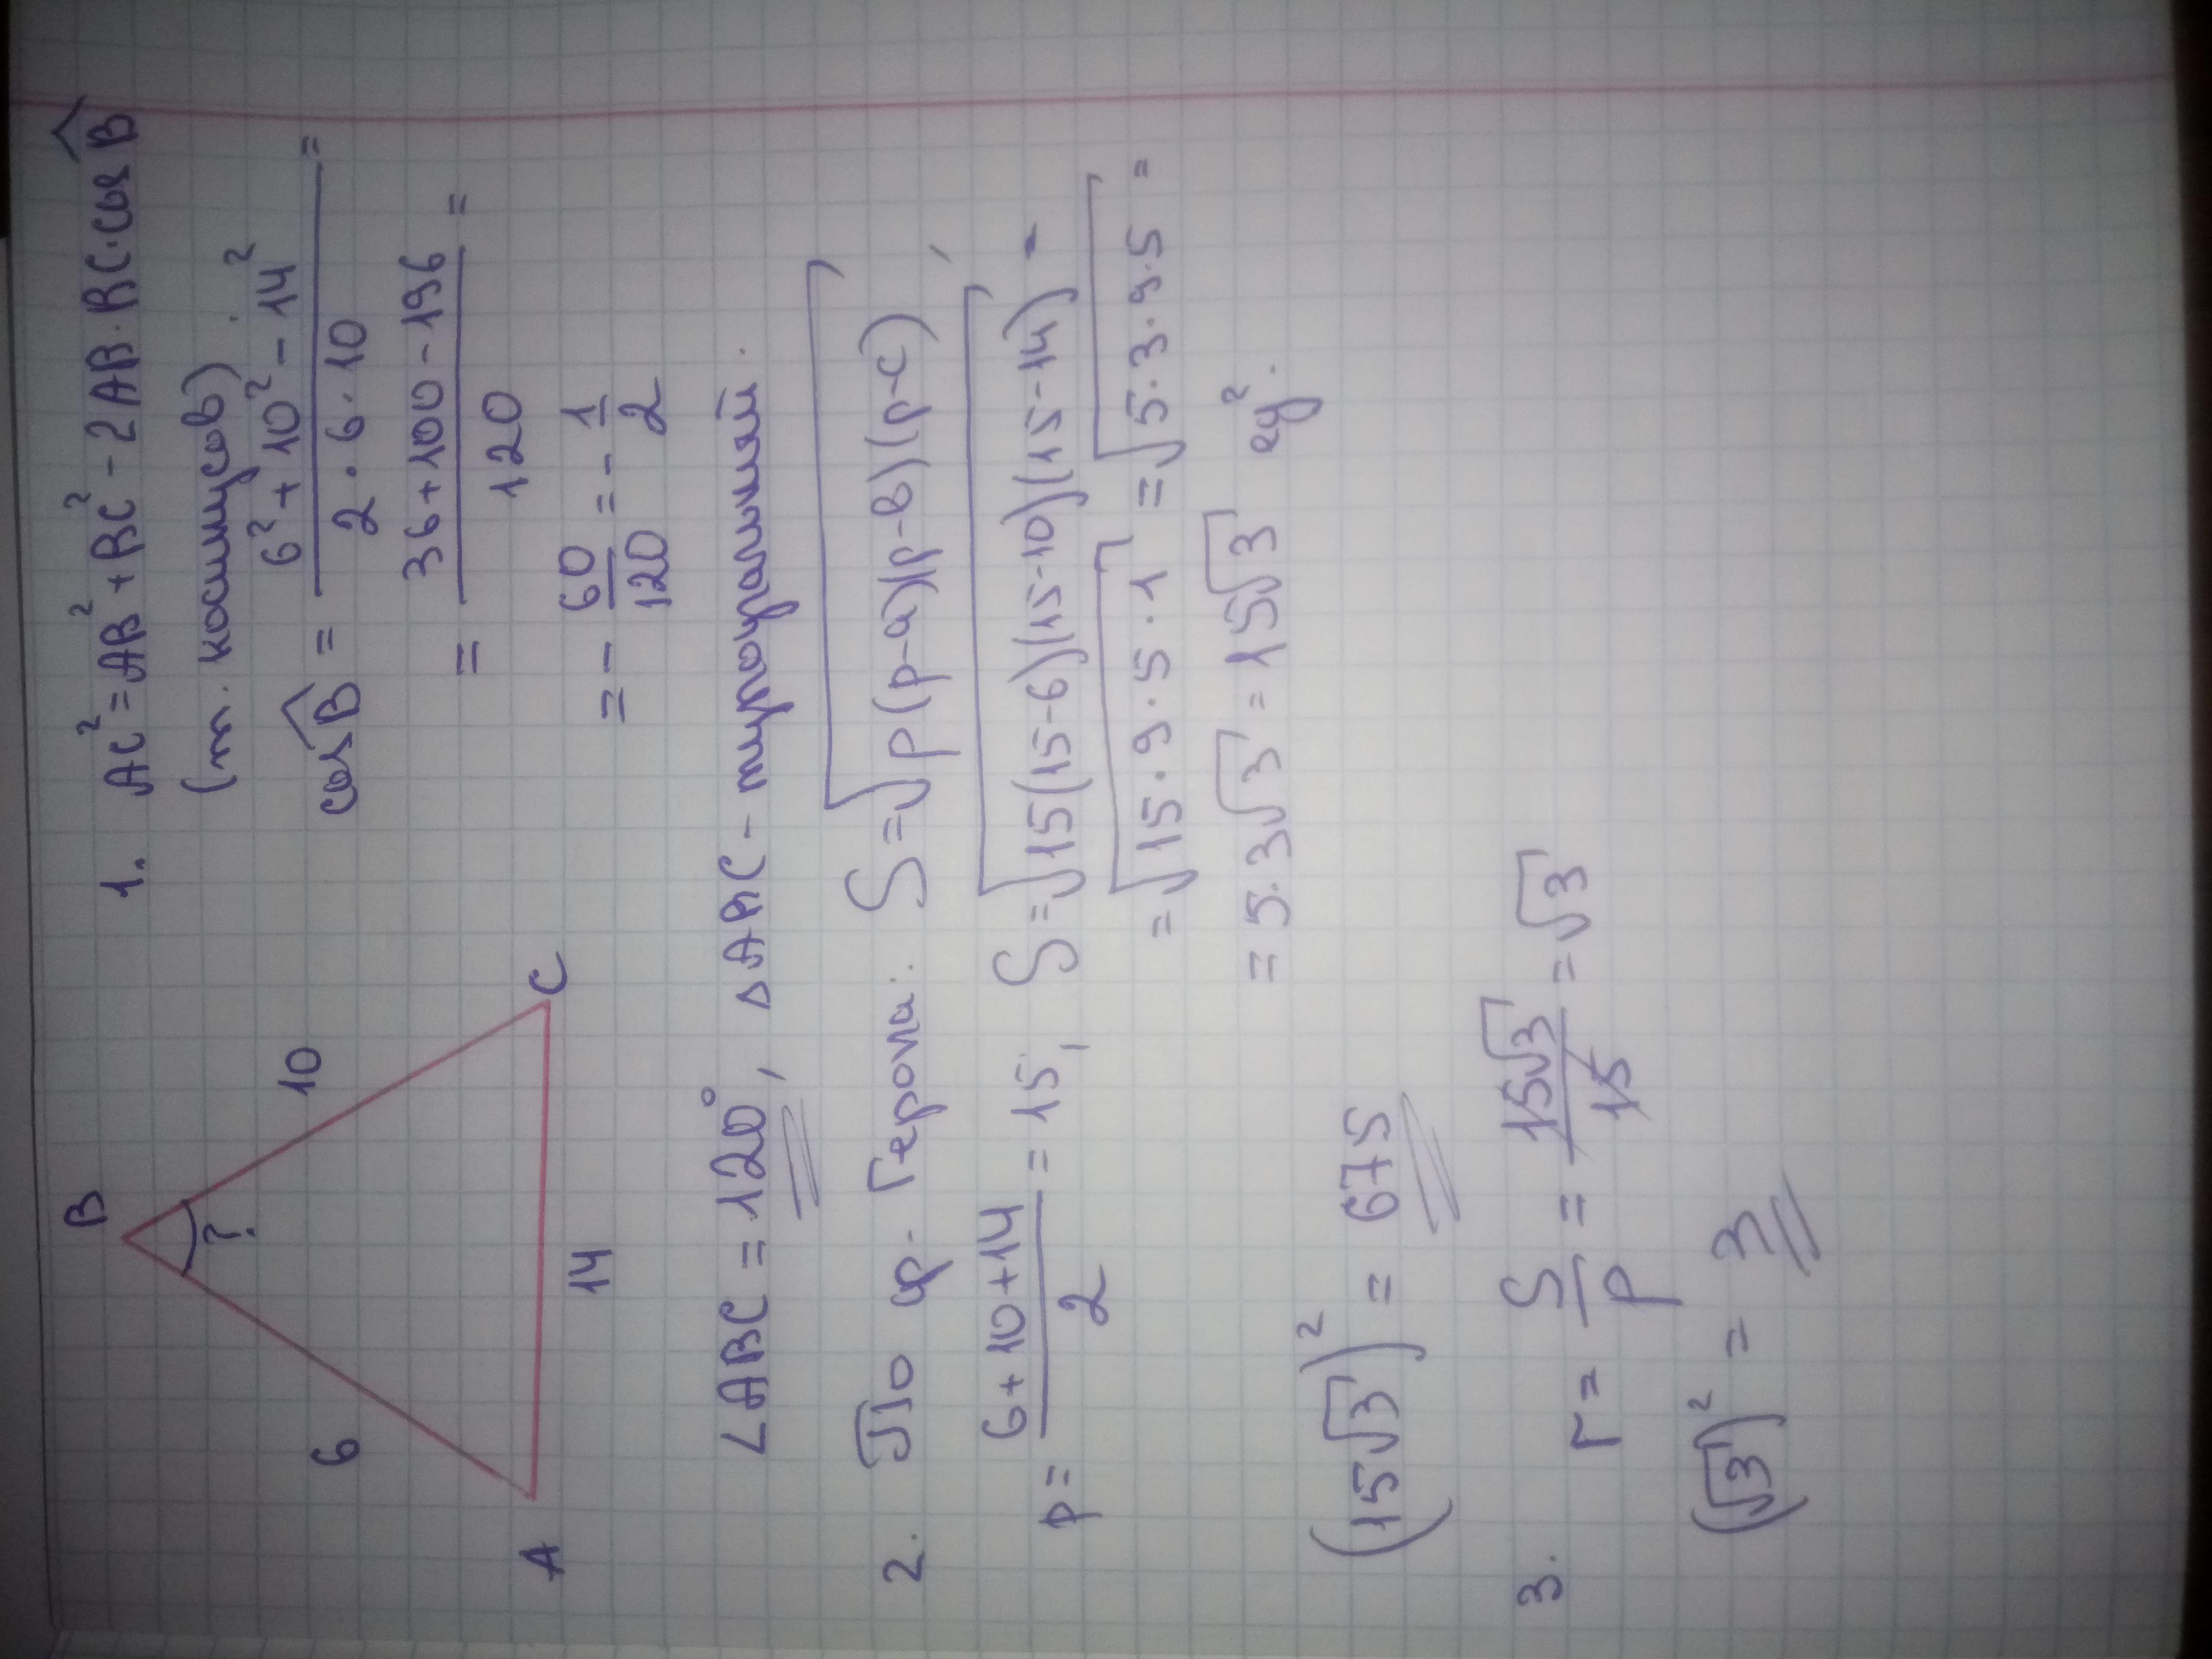 B
?
6
10
A
14
C
1. AC² = AB² + BC² - 2AB·BC·cos B̂
(т. косинусов)
cos B̂ = (6² + 10² - 14²) / (2·6·10) =
= (36 + 100 - 196) / 120 =
= - 60/120 = - 1/2
∠ABC = 120°, △ABC - тупоугольный.
2. По ф. Герона: S = √(p(p-a)(p-b)(p-c)),
p = (6 + 10 + 14) / 2 = 15, S = √(15(15-6)(15-10)(15-14)) =
= √(15·9·5·1) = √(5·3·9·5) =
= 5·3√3 = 15√3 ед².
(15√3)² = 675
3. r = S/p = 15√3/15 = √3
(√3)² = 3